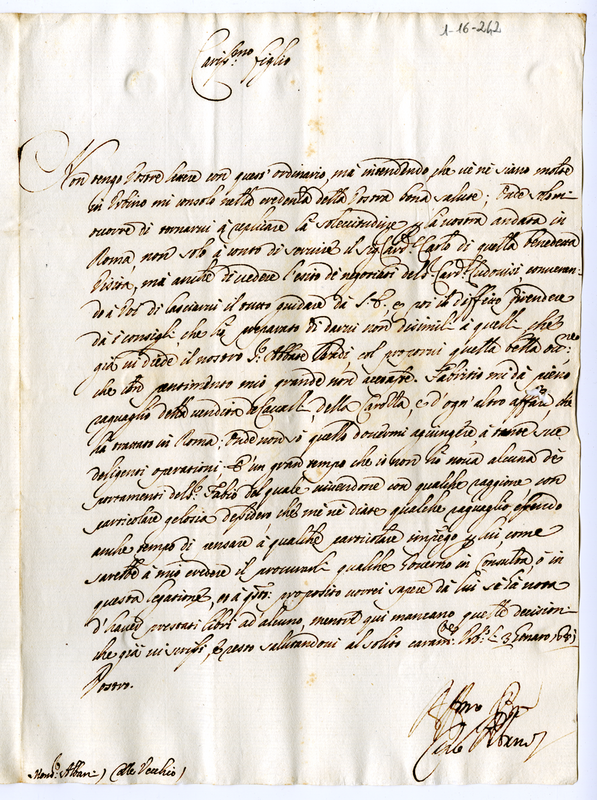 1-16-242
Cariss.mo figlio
Non tengo Vostre lettere con quest' ordinario, mà intendendo che ve nè siano molte
in Urbino mi consolo nella credenza della Vostra bona salute; Onde solo mi
occorre di tornarvi à replicare la sollecitudine la vostra andata in
Roma, non solo à conto di servire il Sig.r Card. Carlo di quella benedetta
visita, mà anche di vedere l'esito de negotiati del S. Card. Ludovisi
do à lasciarvi il tutto guidare da S. E., e poi il
da i consigli, che hà preparato di darvi non dissimili à quelli che
già vi diede il nostro S. Abbate col procurarvi quella bella
che con sentimento mio grande non accettaste. Fabritio mi dà pieno
raguaglio della vendita de Cavalli, della Carozza, e d'ogn' altro affare, che
hà trattato in Roma: Onde non sò quello dovermi aggiungere à tante sue
operationi. È un gran tempo che io non hò nova alcuna de
portamenti del S. Fabio del quale vivendone con qualche raggione con
particolare gelosia desidero che me nè diate qualche raguaglio essendo
anche tempo di pensare à qualche particolare impiego p lui come
sarebbe à mio credere il procurarli qualche Governo in Consulta, ò in
questa legatione, et à proposito vorrei sapere dà lui se hà nota
d'haver prestati libri ad alcuno, mentre qui mancano quelle decisioni
che già vi scrissi, e resto salutandovi al solito caram.te Urb.o li 3 Genaro
Vostro.
Aff.mo
Carlo Albani
Mons. Albani (Calle Vecchio)